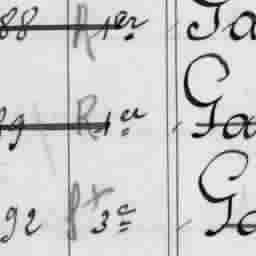 88 R 1er Ga
89 R 1er Ga
92 3e Ga